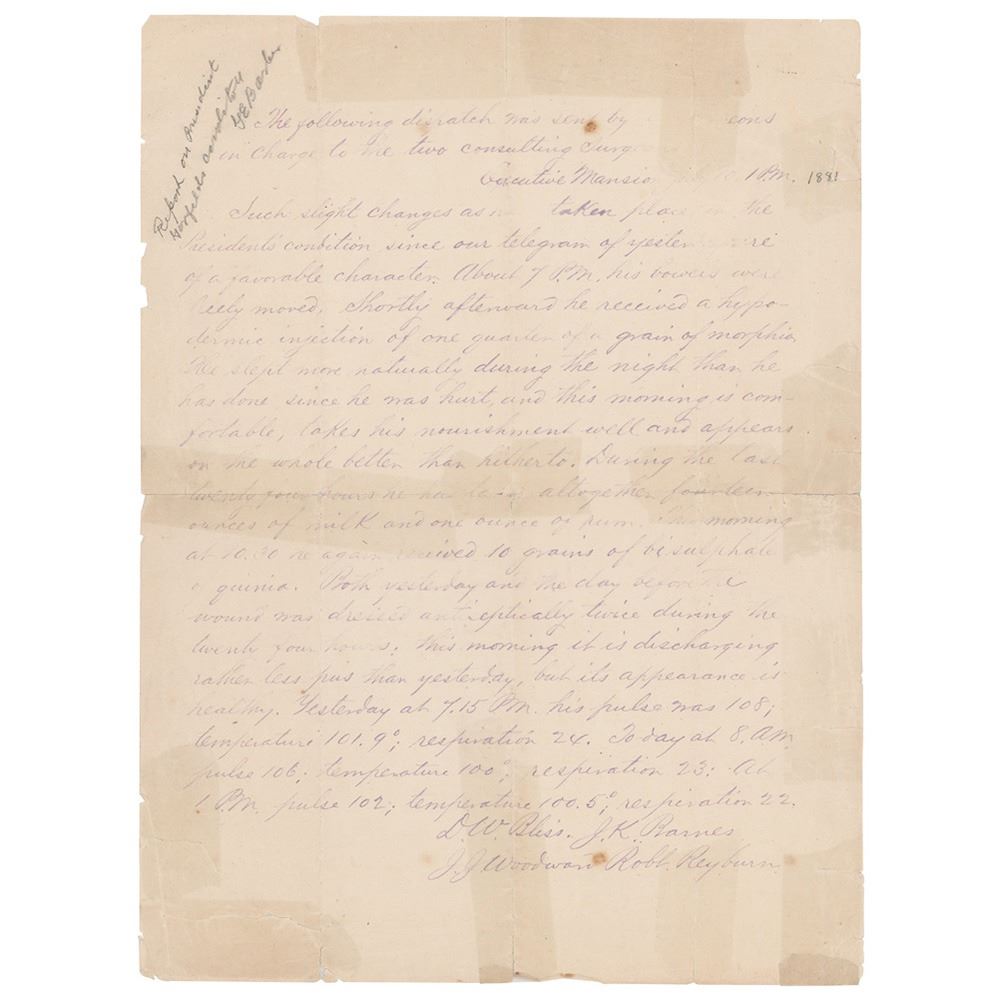 Report on President
Garfields condition
The following dispatch was sent by eons
in charge to the two consulting Surgeons
Executive Mansion 10, 1 P.M. 1881
Such slight changes as taken place in the
Presidents condition since our telegram of yester
of a favorable character. About 7 P.M. his bowels were
moved. Shortly afterward he received a hypo-
dermic injection of one quarter of a grain of morphia
He slept more naturally during the night than he
has done since he was hurt, and this morning is com-
fortable, takes his nourishment well and appears
on the whole better than hitherto. During the last
twenty four hours he has taken altogether fourteen
ounces of milk and one ounce of rum. This morning
at 10.30 he again received 10 grains of bisulphate
o quinia. Both yesterday and the day before the
wound was dressed antiseptically twice during the
twenty four hours. This morning it is discharging
rather less pus than yesterday, but its appearance is
healthy. Yesterday at 7.15 P.M. his pulse was 108;
temperature 101.9°; respiration 24. To day at 8. A.M.
pulse 106; temperature 100°; respiration 23; At
1 P.M. pulse 102; temperature 100.5°; respiration 22.
D.W. Bliss. J.K. Barnes
J.J. Woodward Robt. Reyburn